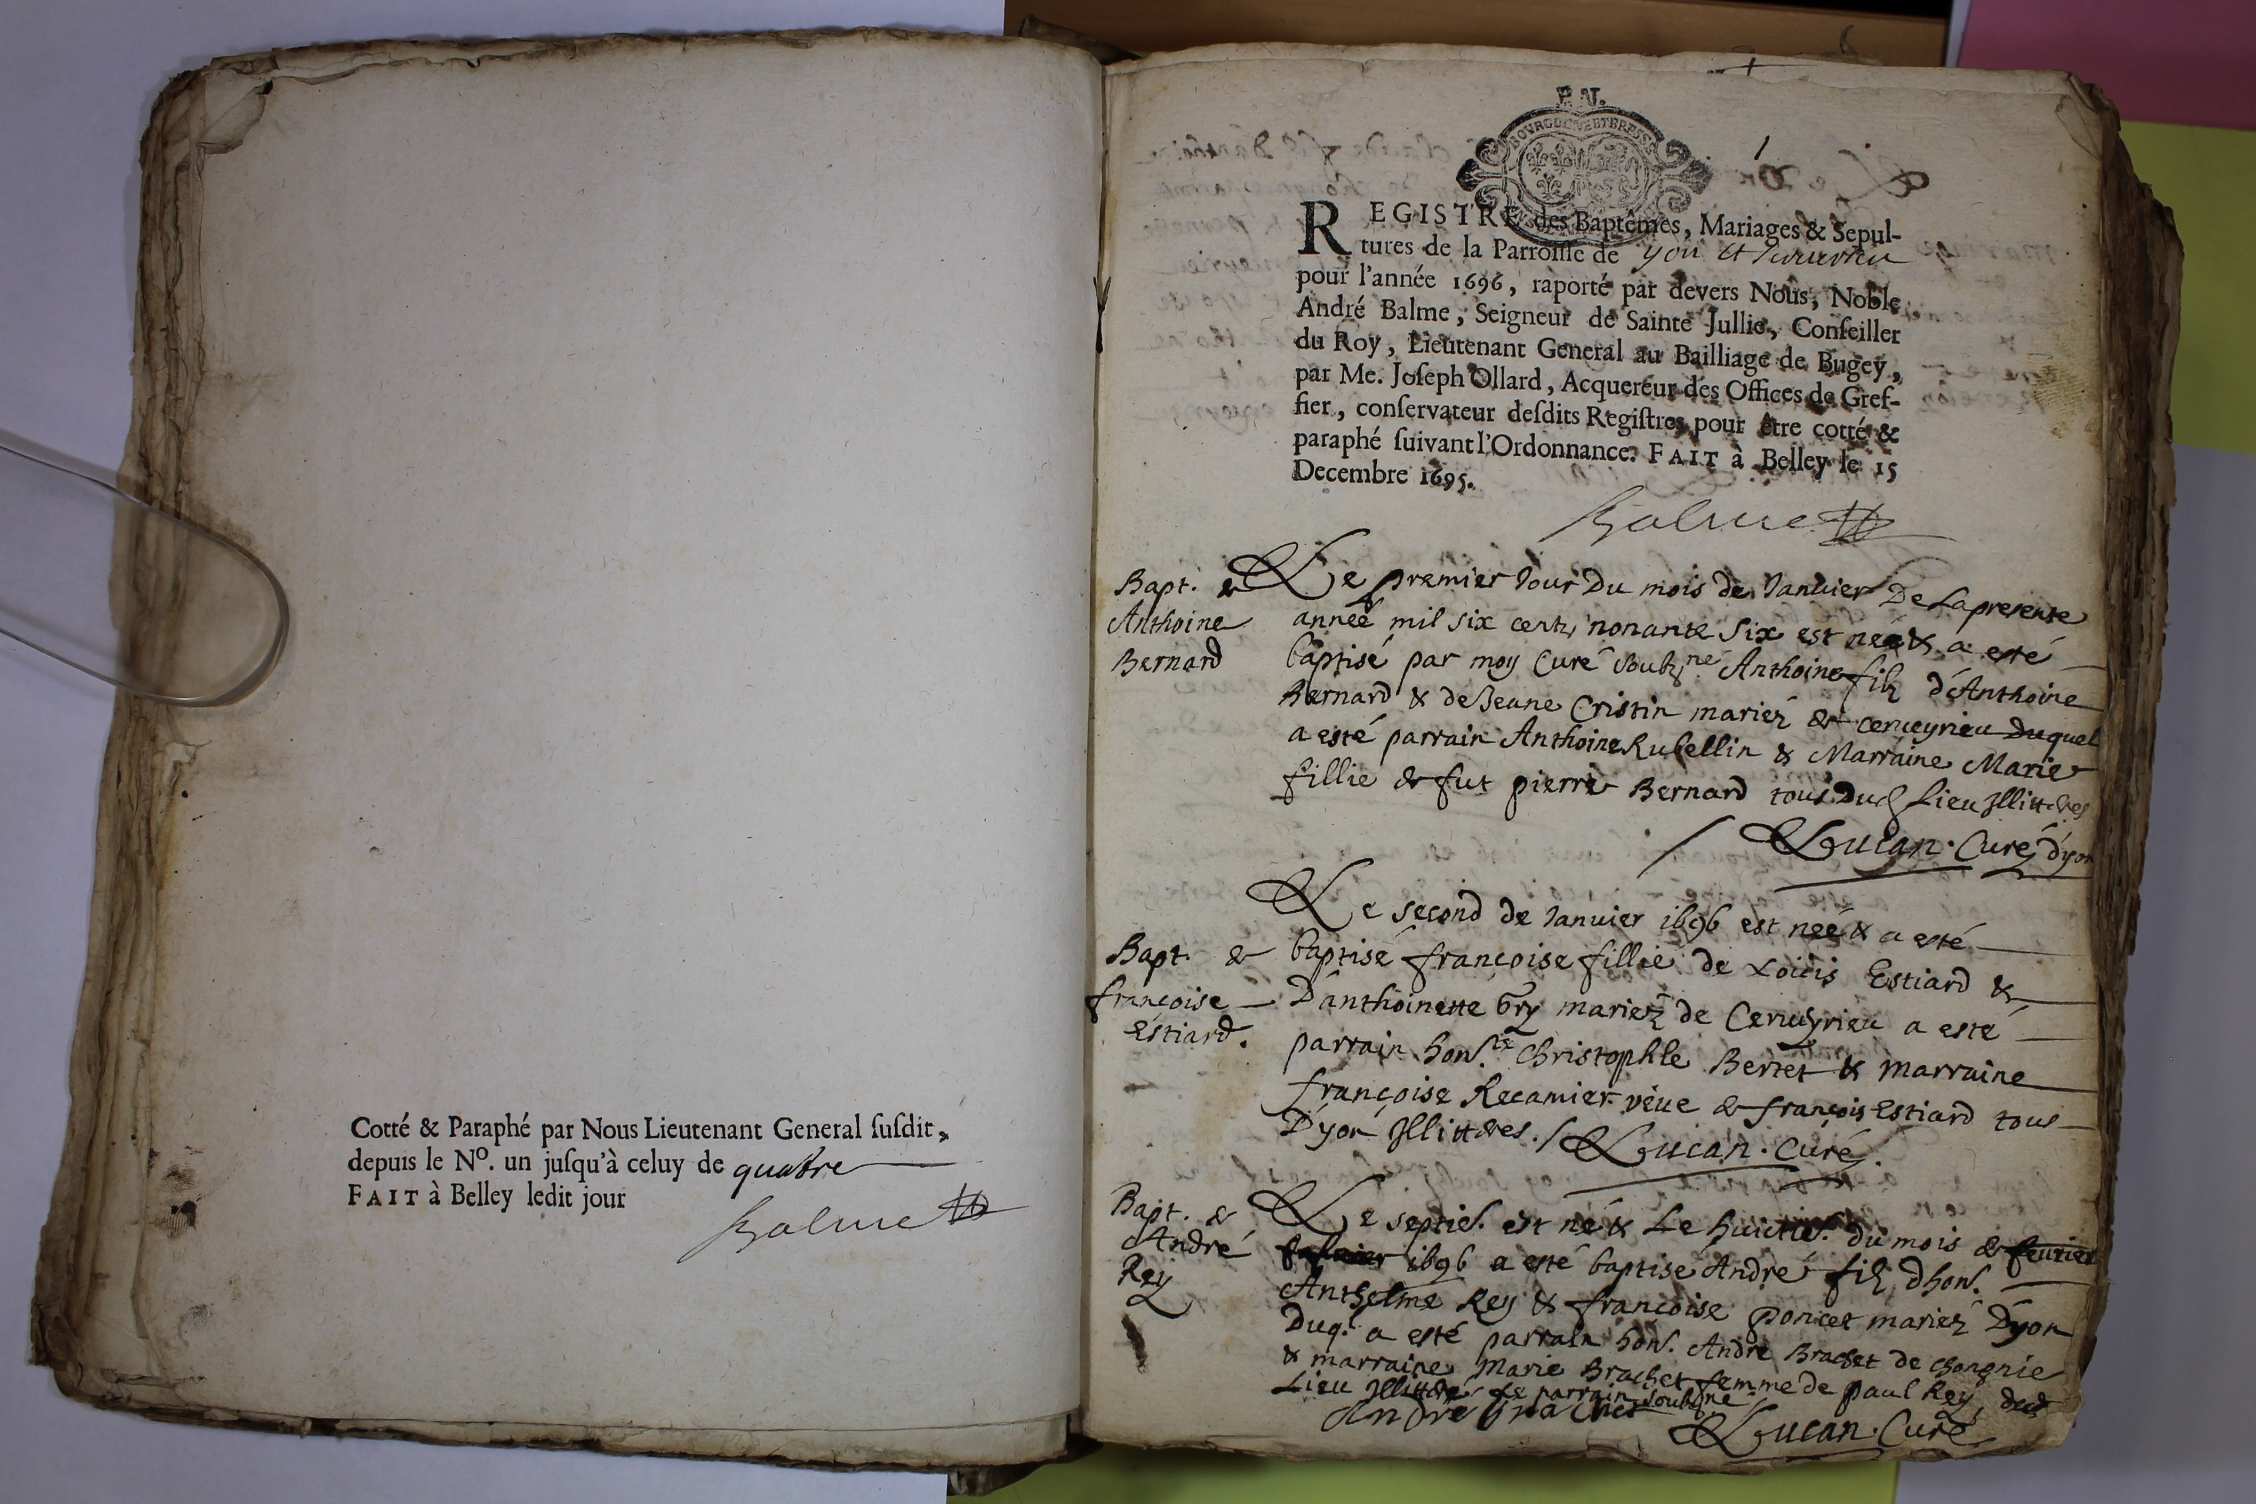 Cotté & Paraphé par Nous Lieutenant General ſuſdit,
depuis le No. un juſqu'à celuy de quatre
FAIT à Belley ledit jour
Balme
1
REGISTRE des Baptêmes, Mariages & Sepul-
tures de la Parroiſſe de yon et
pour l'année 1696, raporté par devers Nous, Noble
André Balme, Seigneur de Sainte Jullie, Conſeiller
du Roy, Lieutenant General au Bailliage de Bugey,
par Me. Joſeph Ollard, Acquereur des Offices de Gref-
fier, conſervateur deſdits Regiſtres, pour être cotté &
paraphé ſuivant l'Ordonnance. FAIT à Belley le 15
Decembre 1695.
Balme
Bapt. de
Anthoine
Bernard
Le premier Jour Du mois de Janvier De La presente
année mil six cents nonante Six est né & a esté
baptisé par moy Curé soubs.né Anthoine filz d'Anthoine
Bernard & de Jeane Cristin mariez de cerveyrieu Duquel
a esté parrain Anthoine Rubellin & Marraine Marie
fillie de fut pierre Bernard tous Dud Lieu Jllitteres
Lucan. Curé d'yon
Bapt. de
françoise
Estiard.
Le second de Janvier 1696 est née & a esté
baptisé françoise fillie de Loüis Estiard &
D'anthoinette Gry mariez de Cerveyrieu a esté
parrain hon.le Christophle Bertet & marraine
françoise Recamier veue de françois Estiard tous
D'yon Jllitteres. / Lucan. Curé.
Bapt. de
André
Rey
Le septie. est né & Le huictie. du mois de feurier
1696 a esté baptisé André filz d'hon.
Anthelme Rey & françoise poncet mariez D'yon
Duq. a esté parrain hon. André Brachet de chongnie
& marraine Marie Brachet femme de paul Rey, dud
Lieu Jllitteré Le parrain soubsiné
André brachet
Lucan. Curé